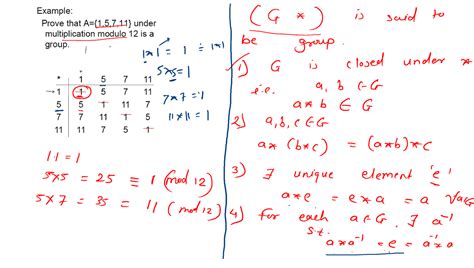 Example:
Prove that A={1,5,7,11} under
multiplication modulo 12 is a
group.
1*1 = 1 = 1*1
5*5=1
7*7=1
11*11=1
* 1 5 7 11
1 1 5 7 11
5 5 1 11 7
7 7 11 1 5
11 11 7 5 1
1.1 = 1
5*5 = 25 ≡ 1 (mod 12)
5 x 7 = 35 ≡ 11 (mod 12)
(G *) is said to
be group.
1) G is closed under *
i.e. a, b ∈ G
a*b ∈ G
2) a,b,c ∈ G
a*(b*c) = (a*b)*c
3) ∃ unique element 'e'
a*e = e*a = a ∀a∈G
4) for each a∈G, ∃ a⁻¹
s.t.
a*a⁻¹ = e = a⁻¹*a